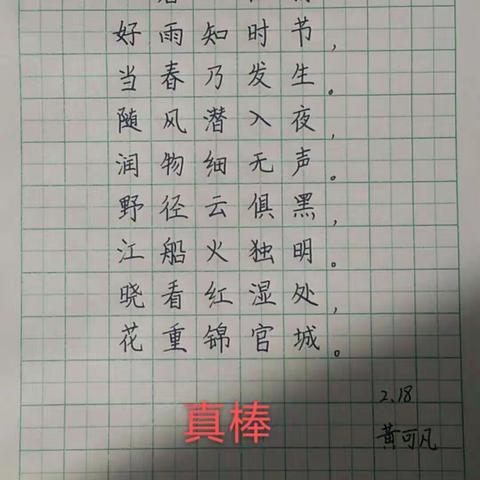 好雨知时节，
当春乃发生。
随风潜入夜，
润物细无声。
野径云俱黑，
江船火独明。
晓看红湿处，
花重锦官城。
2.18
真棒
黄可凡